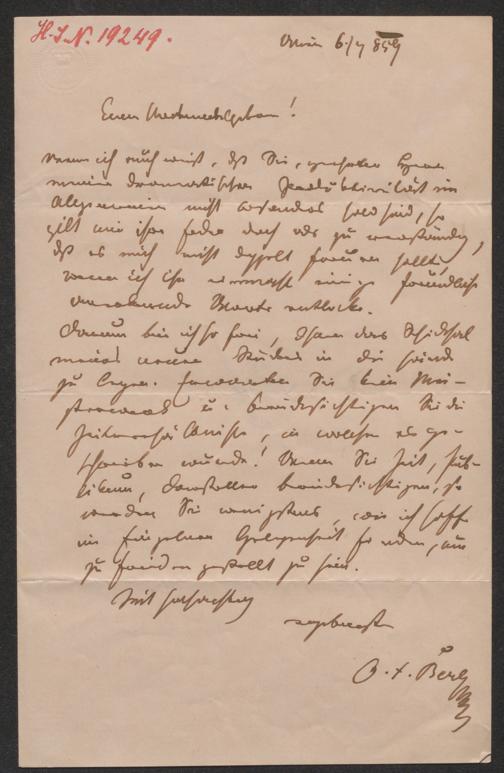 H.I.N. 19249.
Wien 6/7 859
Euer Wohlgeboren!
Wenn ich auch weiß, daß Sie, geehrter Herr
meiner dramatischen Produktivität im
Allgemeinen nicht besonders hold sind, so
gilt mir Ihre Feder doch als zu verständig,
daß es mich nicht doppelt freuen sollte,
wenn ich ihr einige freundliche
Worte entlocke.
Darum bin ich so frei, Ihnen das Schicksal
meines neuen Stückes in die Hände
zu legen. Erwarten Sie kein Mei-
sterwerk u. berücksichtigen Sie die
Zeitverhältnisse, in welchen es ge-
schrieben wurde! Wenn Sie Zeit, Pub-
likum, Darsteller berücksichtigen, so
werden Sie wenigstens, wie ich hoffe
im Einzelnen Gelegenheit finden, um
zufrieden gestellt zu sein.
Mit Hochachtung
ergebenst
O. F. Berg